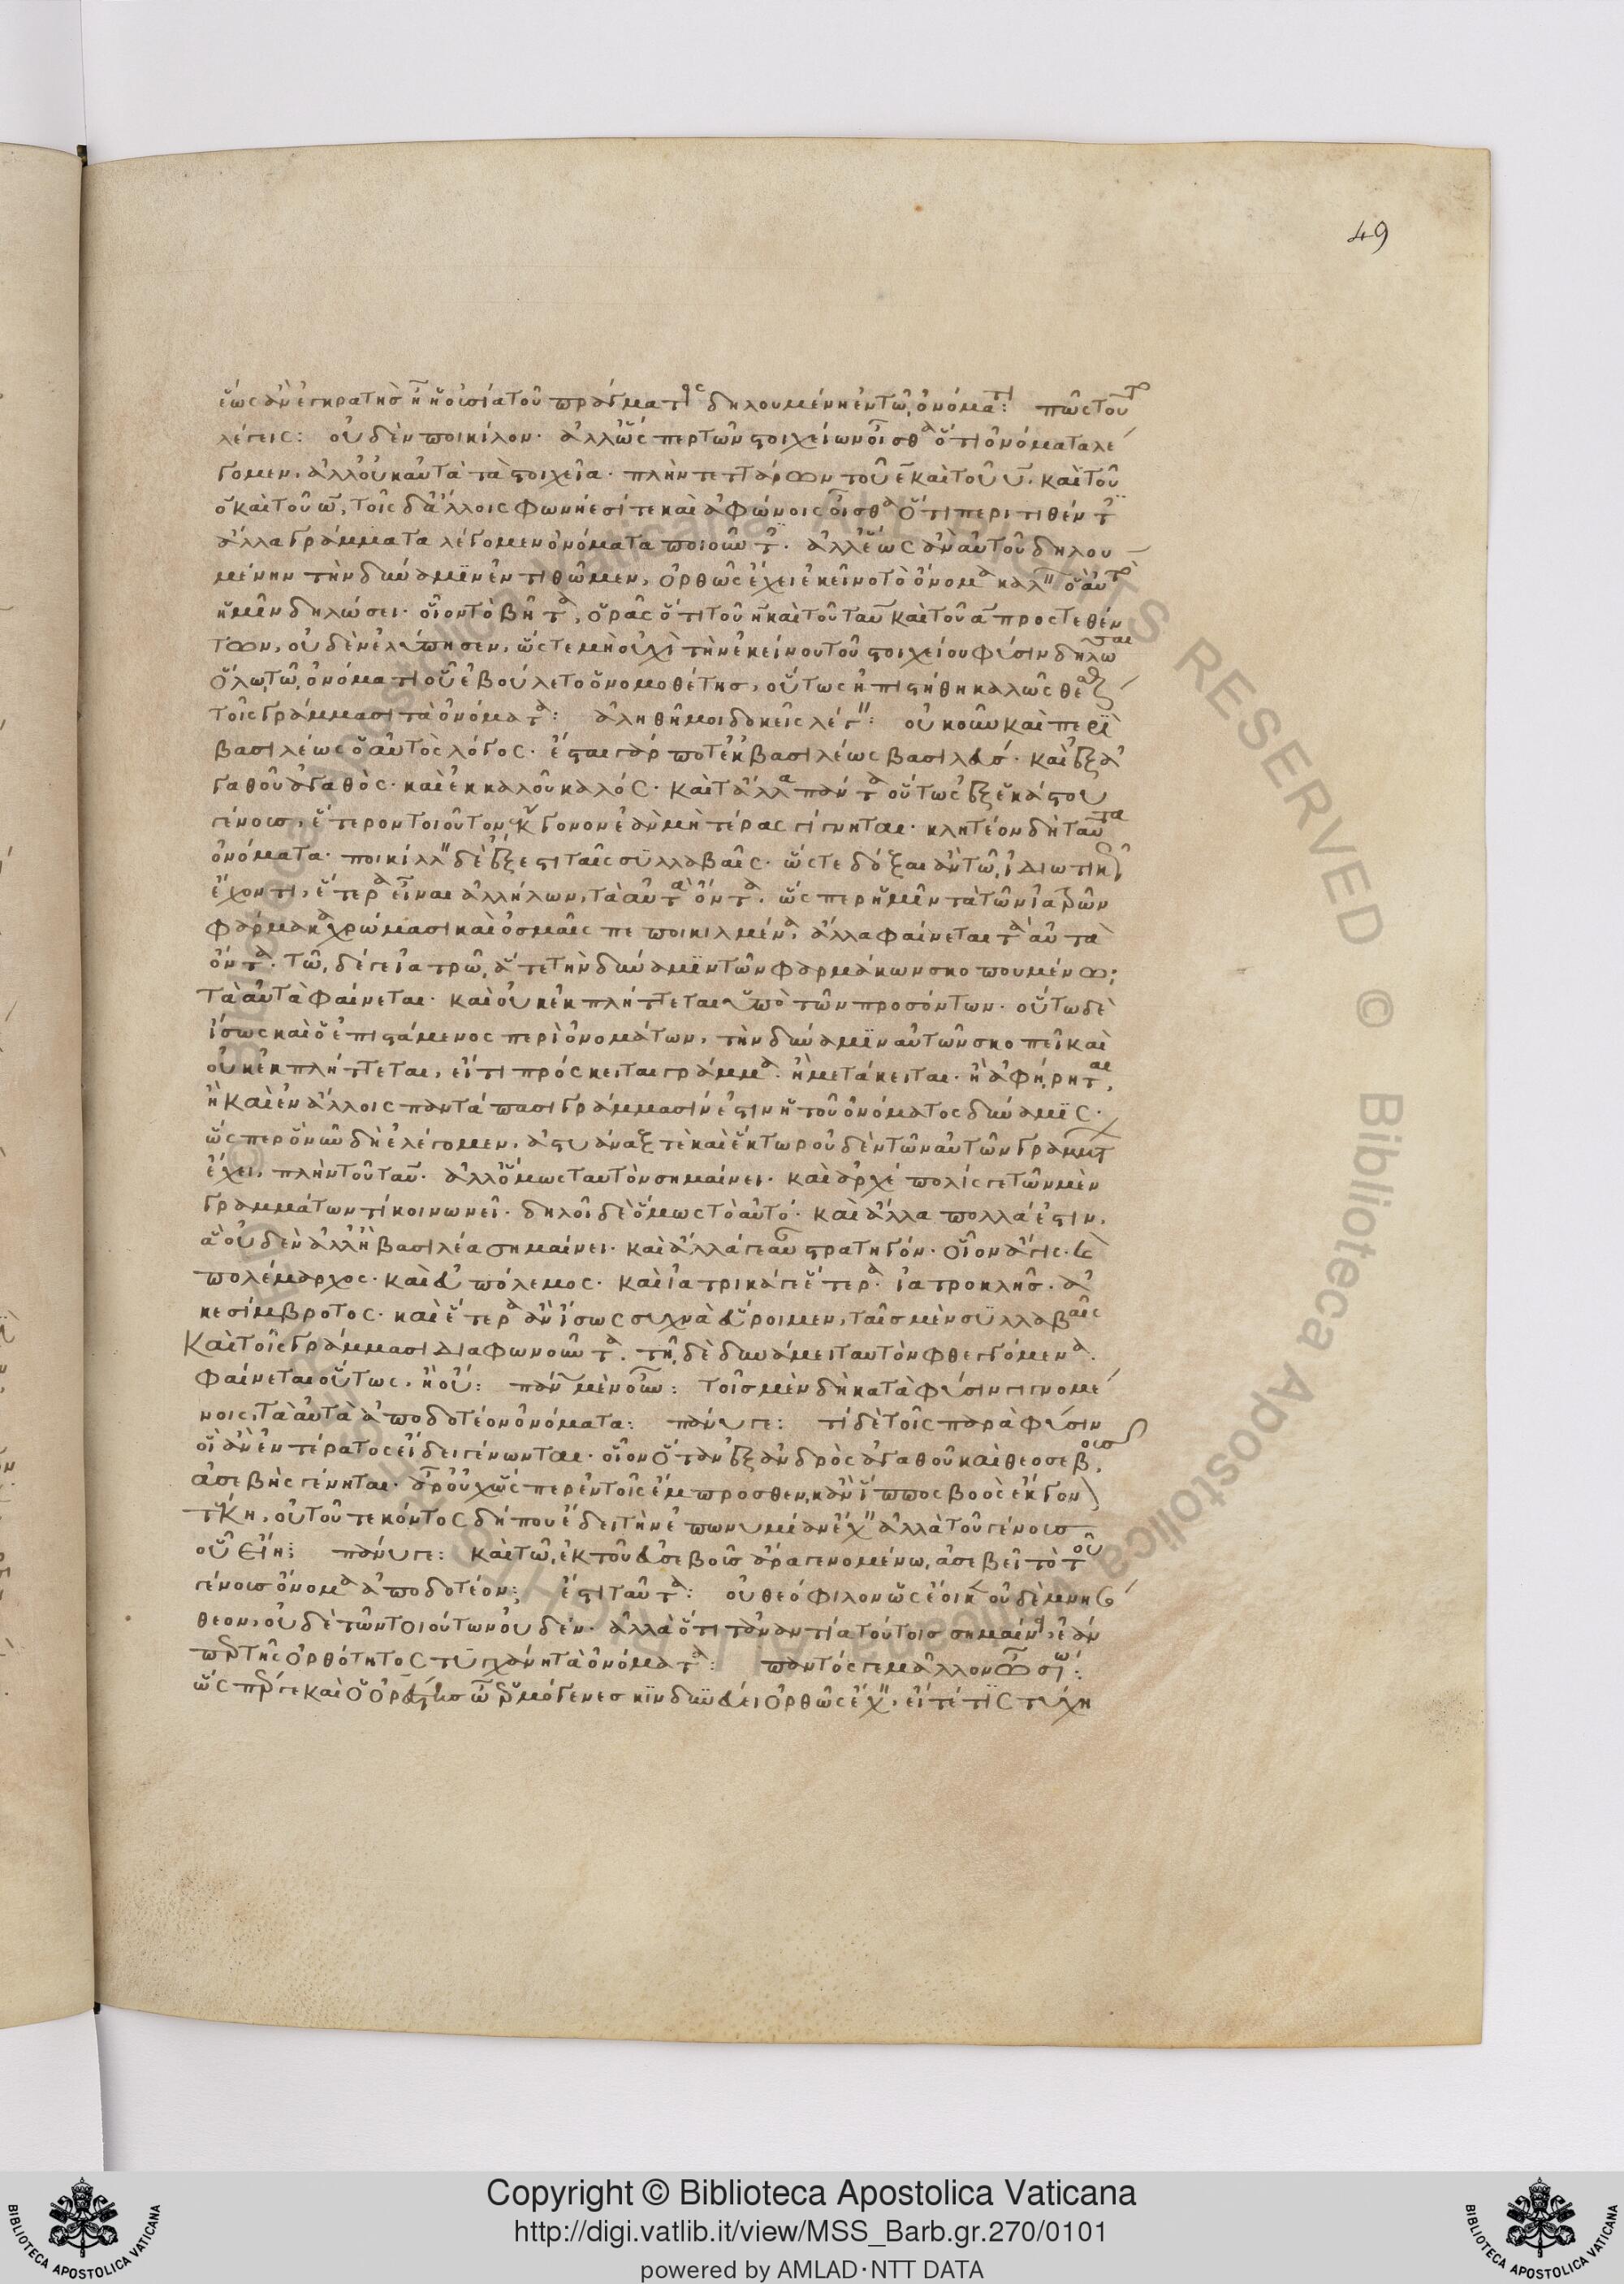 49
ἕως ἂν ἐγκρατὴσ ἦ ἡ οὐσία τοῦ πράγματος δηλουμένη ἐν τῶ, ὀνόματι: πῶς τοῦτο
λέγεις: οὐδὲν ποικίλον· ἀλλ' ὥσπερ τῶν στοιχείων οἶσθα ὅτι ὀνόματα λέ
γομεν, ἀλλ' οὐκ αὐτὰ τὰ στοιχεῖα· πλὴν τεττάρων τοῦ ε̄ καὶ τοῦ ῡ. καὶ τοῦ
ο̄ καὶ τοῦ ω̄, τοῖς δ' ἄλλοις φωνήεσί τε καὶ ἀφώνοις οἶσθα ὅτι περιτιθέντες
ἄλλα γράμματα λέγομεν ὀνόματα ποιοῦντες. ἀλλ' ἕως ἂν αὐτοῦ δηλου
μένην τὴν δύναμϊν ἐντιθῶμεν, ὀρθῶς ἔχει ἐκεῖνο τὸ ὄνομα καλεῖν ὃ αὐτὸ
ἡμῖν δηλώσει· οἷον τὸ βῆτα, ὁρᾶς ὅτι τοῦ η̄ καὶ τοῦ ταῦ καὶ τοῦ ᾱ προστεθέν
των, οὐδὲν ἐλύπησεν, ὥστε μὴ οὐχὶ τὴν ἐκείνου τοῦ στοιχείου φύσιν δηλῶσαι
ὅλω, τῶ, ὀνόματι οὗ ἐβούλετο ὁ νομοθέτησ, οὕτως ἠπιστήθη καλῶς θέσθαι
τοῖς γράμμασι τὰ ὀνόματα: ἀληθῆ μοι δοκεῖς λέγειν: οὐκοῦν καὶ περὶ
βασιλέως ὁ αὐτὸς λόγος· ἔσται γάρ ποτ' ἐκ βασιλέως βασιλεύσ· καὶ ἐξ ἀ
γαθοῦ ἀγαθὸς· καὶ ἐκ καλοῦ καλός· καὶ τἄλλα πάντα οὕτως ἐξ ἑκάστου
γένουσ, ἕτερον τοιοῦτον ἔκγονον ἐὰν μὴ τέρας γίγνηται· κλητέον δὴ ταῦτα
ὀνόματα· ποικίλλειν δὲ ἔξεστι ταῖς συλλαβαῖς· ὥστε δόξαι ἂν τῶ, ἰδιωτικῶς
ἔχοντι, ἕτερα εἶναι ἀλλήλων, τὰ αὐτὰ ὄντα. ὥσπερ ἡμῖν τὰ τῶν ἰατρῶν
φάρμακα χρώμασι καὶ ὀσμαῖς πεποικιλμένα, ἄλλα φαίνεται τὰ αὐτὰ
ὄντα. τῶ, δέ γε ἰατρῶ, ἅτε τὴν δύναμϊν τῶν φαρμάκων σκοπουμένω;
τὰ αὐτὰ φαίνεται· καὶ οὐκ ἐκπλήττεται ὑπὸ τῶν προσόντων· οὕτω δὲ
ἴσως καὶ ὁ ἐπιστάμενος περὶ ὀνομάτων, τὴν δύναμϊν αὐτῶν σκοπεῖ καὶ
οὐκ ἐκπλήττεται, εἴ τι πρόσκειται γράμμα· ἢ μετάκειται· ἢ ἀφήρηται,
ἢ καὶ ἐν ἄλλοις παντάπασι γράμμασίν ἐστιν ἡ τοῦ ὀνόματος δύναμϊς·
ὥσπερ ὃ νῦν δὴ ἐλέγομεν, ἀστυάναξ τὲ καὶ ἕκτωρ οὐδὲν τῶν αὐτῶν γραμμάτων
ἔχει, πλὴν τοῦ ταῦ· ἀλλ' ὅμως ταυτὸν σημαίνει· καὶ ἀρχέπολίς γε τῶν μὲν
γραμμάτων τί κοινωνεῖ· δηλοῖ δὲ ὅμως τὸ αὐτό· καὶ ἄλλα πολλά ἐστιν,
ἃ οὐδὲν ἀλλ' ἢ βασιλέα σημαίνει· καὶ ἄλλά γε αὖ στρατηγόν· οἷον ἄγις· καὶ
πολέμαρχος· καὶ εὐπόλεμος· καὶ ἰατρικά γε ἕτερα· ἰατροκλῆσ· ἀ
κεσίμβροτος· καὶ ἕτερα ἂν ἴσως συχνὰ εὕροιμεν, ταῖσ μὲν συλλαβαῖς
καὶ τοῖς γράμμασι διαφωνοῦντα. τῆ, δὲ δυνάμει ταυτὸν φθεγγόμενα.
φαίνεται οὕτως, ἢ οὔ: πάνυ μὲν οὖν: τοῖσ μὲν δὴ κατὰ φύσιν γιγνομέ
νοις, τὰ αὐτὰ ἀποδοτέον ὀνόματα: πάνυ γε: τί δὲ τοῖς παρὰ φύσιν
οἳ ἂν ἐν τέρατος εἴδει γένωνται· οἷον ὅταν ἐξ ἀνδρὸς ἀγαθοῦ καὶ θεοσεβοῦσ,
ἀσεβὴς γένηται· ἆρ' οὐχ ὥσπερ ἐν τοῖς ἔμπροσθεν, κἂν ἵππος βοὸς ἔκγονον
τέκη, οὐ τοῦ τεκόντος δήπου ἔδει τὴν ἐπωνυμίαν ἔχειν ἀλλὰ τοῦ γένουσ
οὗ εἴη; πάνυ γε: καὶ τῶ, ἐκ τοῦ εὐσεβοῦσ ἄρα γενομένω, ἀσεβεῖ τὸ τοῦ
γένουσ ὄνομα ἀποδοτέον; ἔστι ταῦτα: οὐ θεόφιλον ὡς ἔοικεν οὐδὲ μνησί
θεον, οὐδὲ τῶν τοιούτων οὐδέν· ἀλλὰ ὅτι τἀναντία τούτοισ σημαίνει, ἐάν
περ τῆς ὀρθότητος τυγχάνη τὰ ὀνόματα: παντός γε μᾶλλον ὦ σώ:
ὥσπερ γε καὶ ὁ ὀρέστησ ὦ ἑρμόγενεσ κϊνδυνεύει ὀρθῶς ἔχειν, εἴτέ τϊς τύχη
Copyright © Biblioteca Apostolica Vaticana
http://digi.vatlib.it/view/MSS_Barb.gr.270/0101
powered by AMLAD·NTT DATA